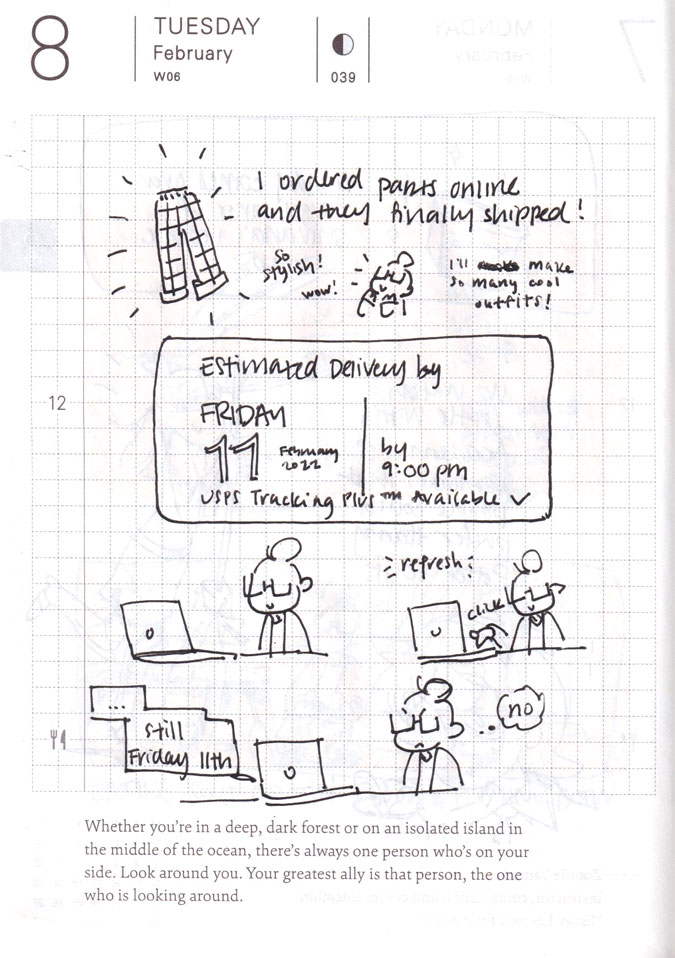 8
TUESDAY
February
W06
039
I ordered pants online
and they finally shipped!
So
stylish!
wow!
I'll make
so many cool
outfits!
Estimated Delivery by
12
FRIDAY
11
February
2022
by
9:00 pm
USPS Tracking Plus™ Available ✓
refresh
click
...
still
Friday 11th
no
Whether you're in a deep, dark forest or on an isolated island in
the middle of the ocean, there's always one person who's on your
side. Look around you. Your greatest ally is that person, the one
who is looking around.